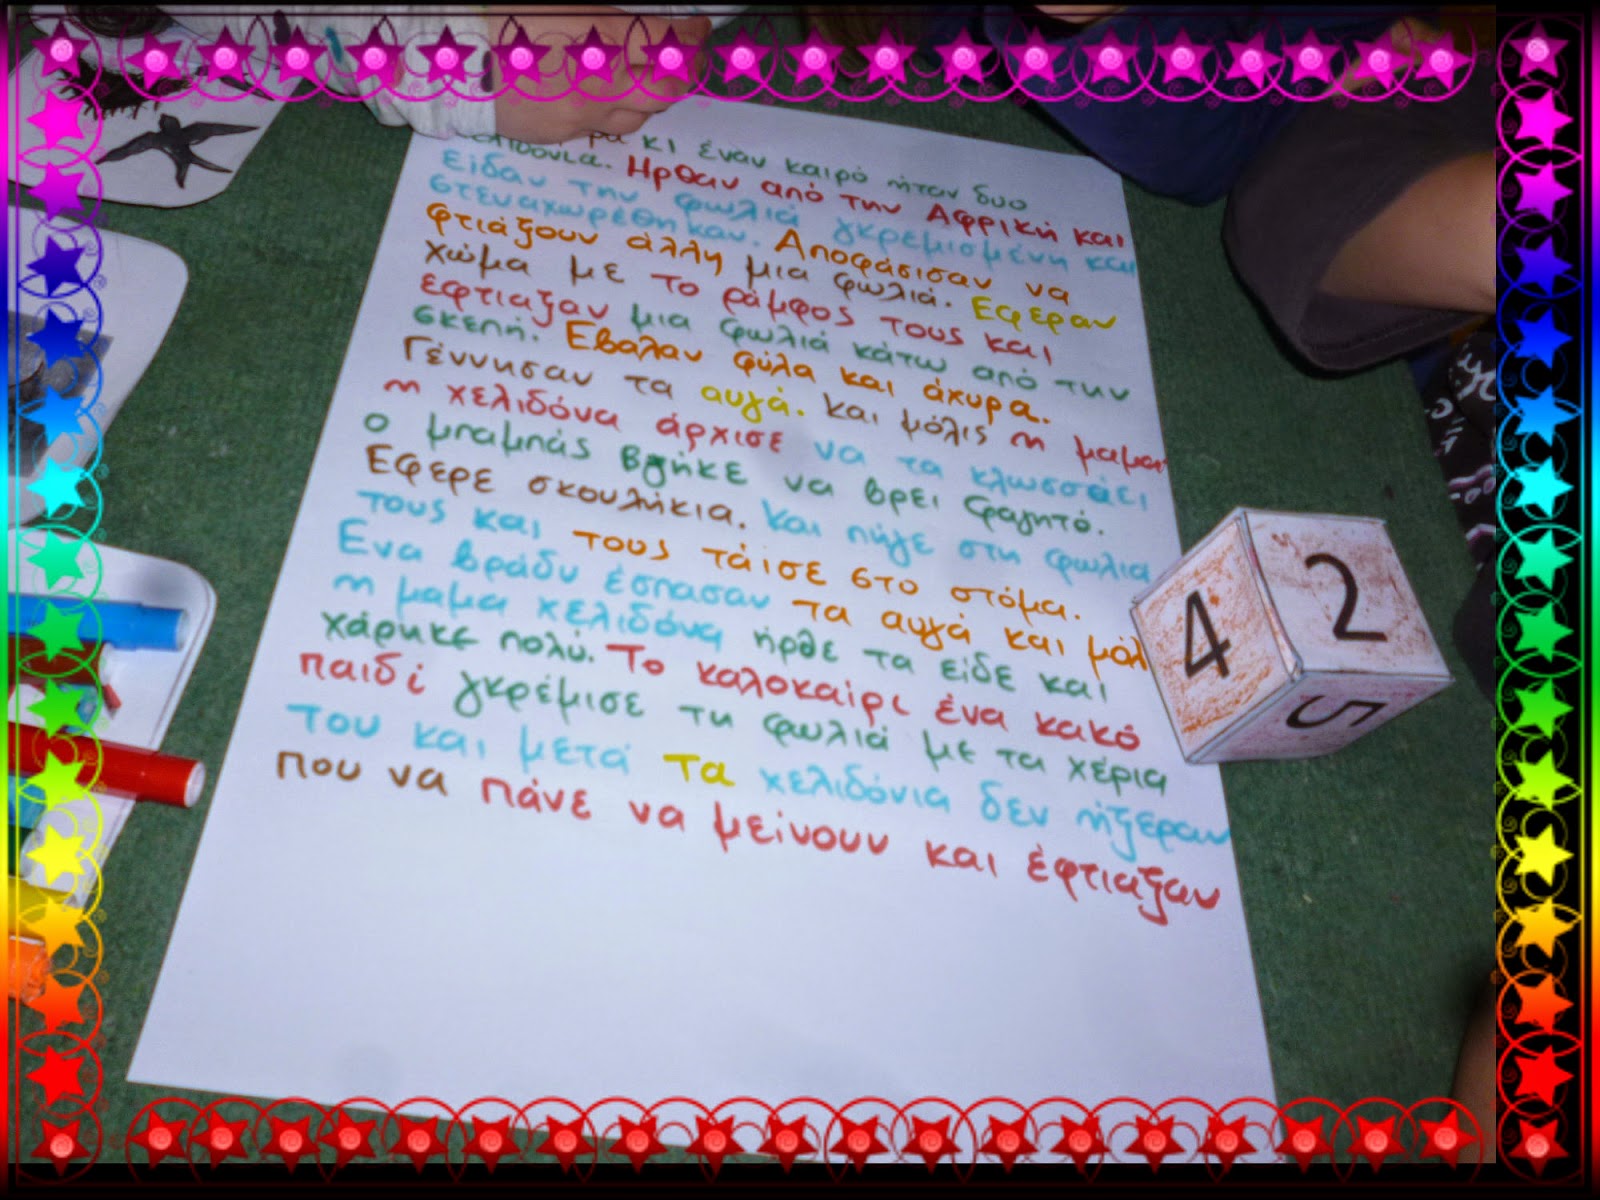 κι έναν καιρό ήταν δυο
χελιδόνια. Ηρθαν από την Αφρική και
είδαν την φωλιά γκρεμισμένη και
στεναχωρέθηκαν. Αποφάσισαν να
φτιάξουν άλλη μια φωλιά. Εφεραν
χώμα με το ράμφος τους και
εφτιαξαν μια φωλιά κάτω από την
σκεπή. Εβαλαν φύλα και άχυρα.
Γέννησαν τα αυγά. και μόλις η μαμα
η χελιδόνα άρχισε να τα κλωσσάει
ο μπαμπάς βγήκε να βρει φαγητό.
Εφερε σκουλήκια. και πήγε στη φωλια
τους και τους τάισε στο στόμα.
Ενα βράδυ έσπασαν τα αυγά και μόλ
η μαμα χελιδόνα ήρθε τα είδε και
χάρηκε πολύ. Το καλοκαίρι ένα κακό
παιδί γκρέμισε τη φωλιά με τα χέρια
του και μετά τα χελιδόνια δεν ήξεραν
που να πάνε να μείνουν και έφτιαξαν
4
2
5